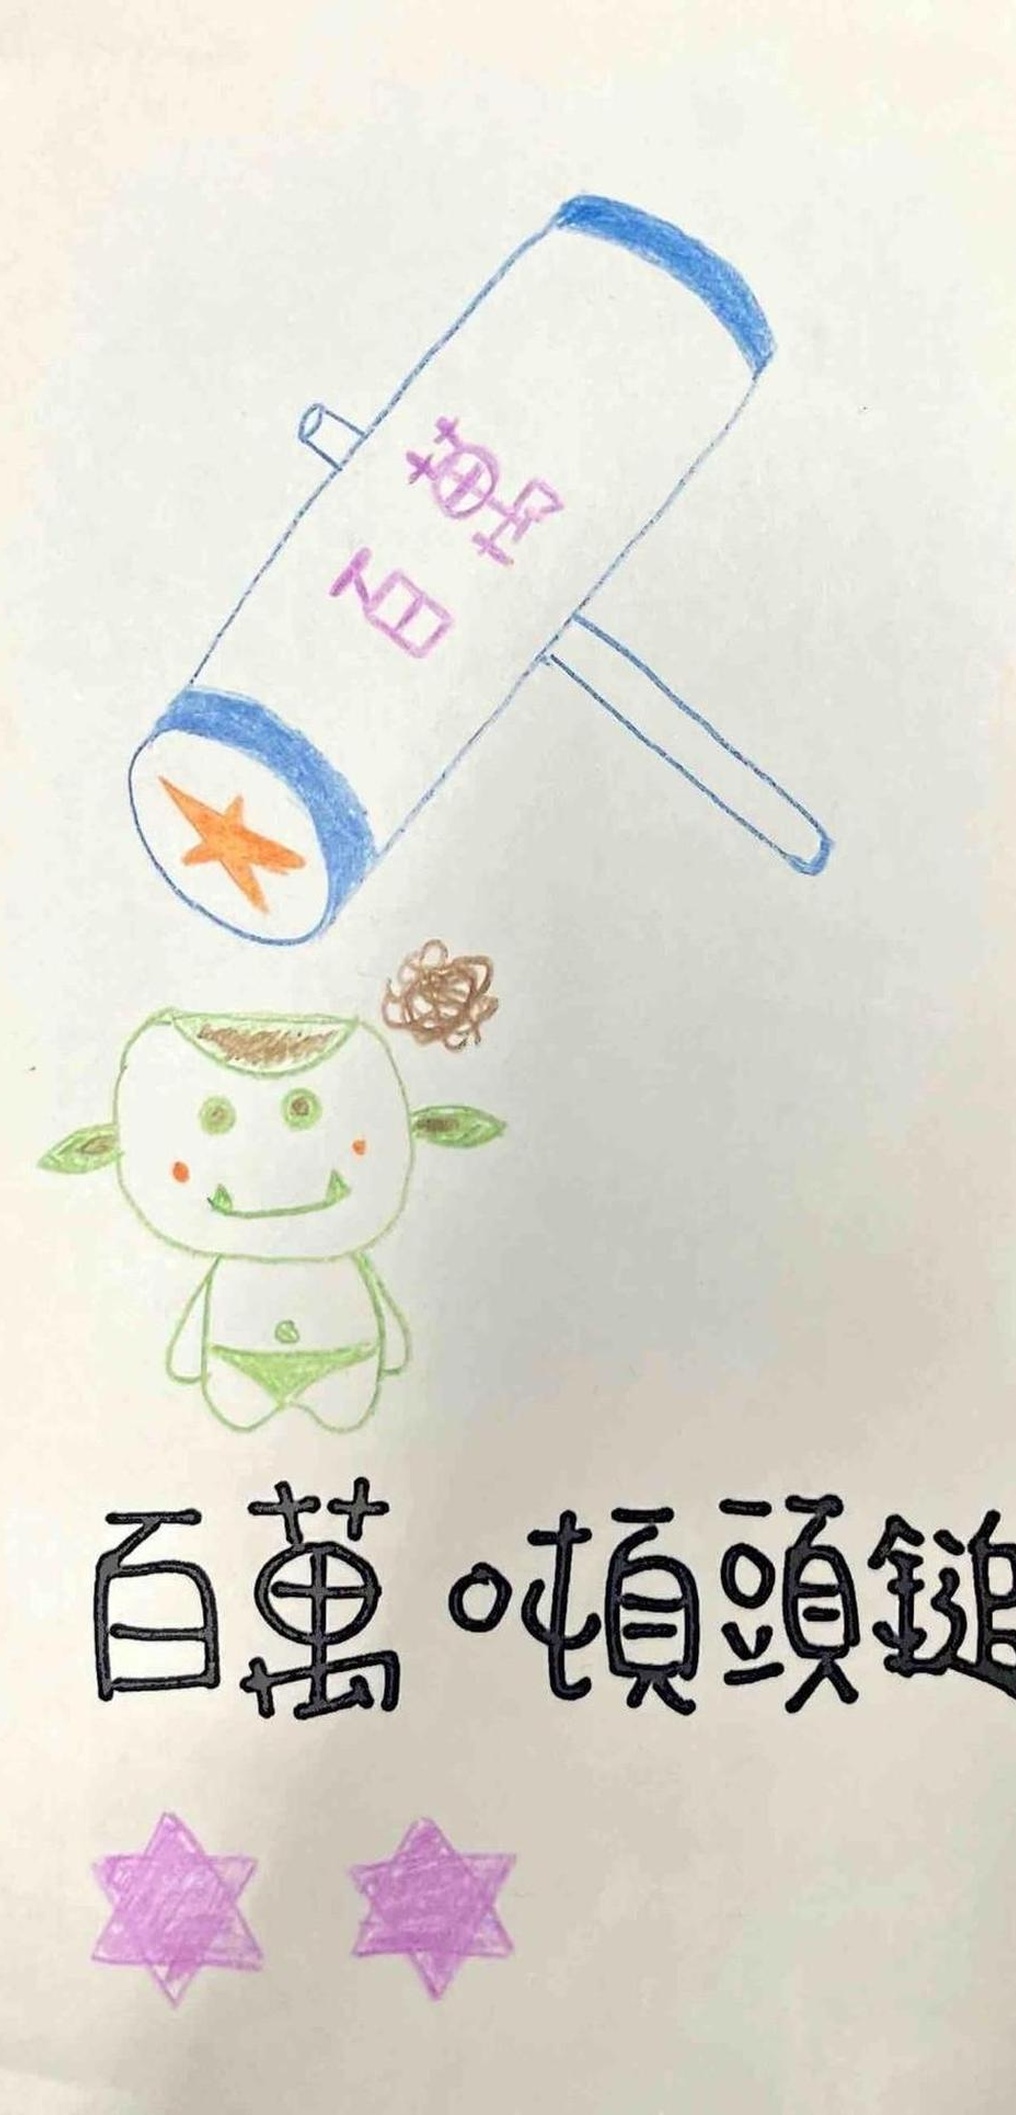 百萬
百萬噸頭鎚